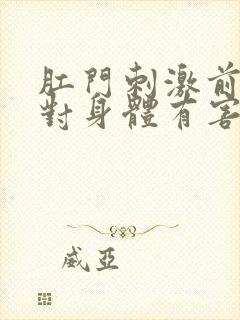 肛門刺激前
對身體有害
威亞